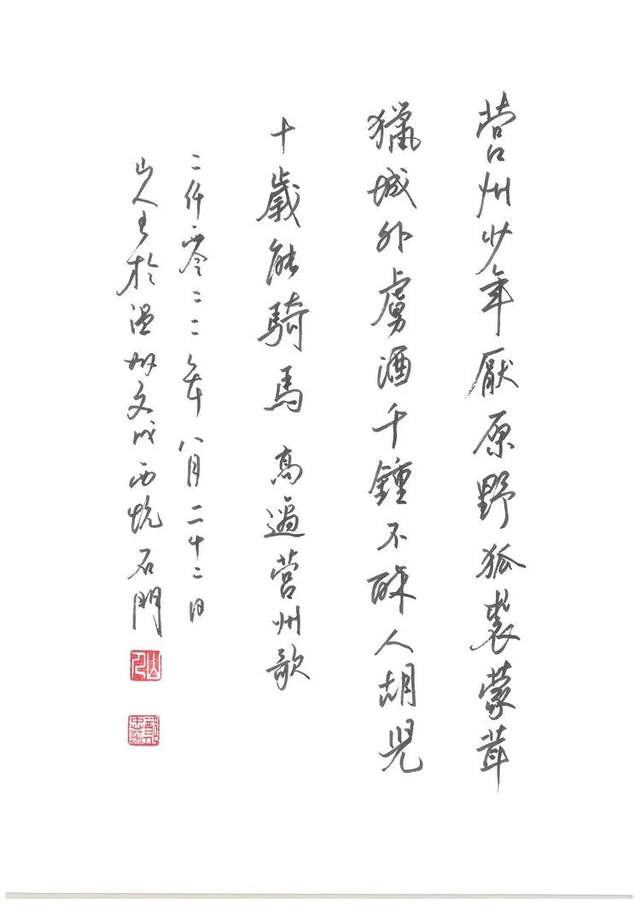 营州少年厭原野狐裘蒙茸
獵城外虜酒千鍾不醉人胡兒
十歲能騎馬 高適营州歌
二仟零二二年八月二十二日
山人书於温州文成西坑石門
山人